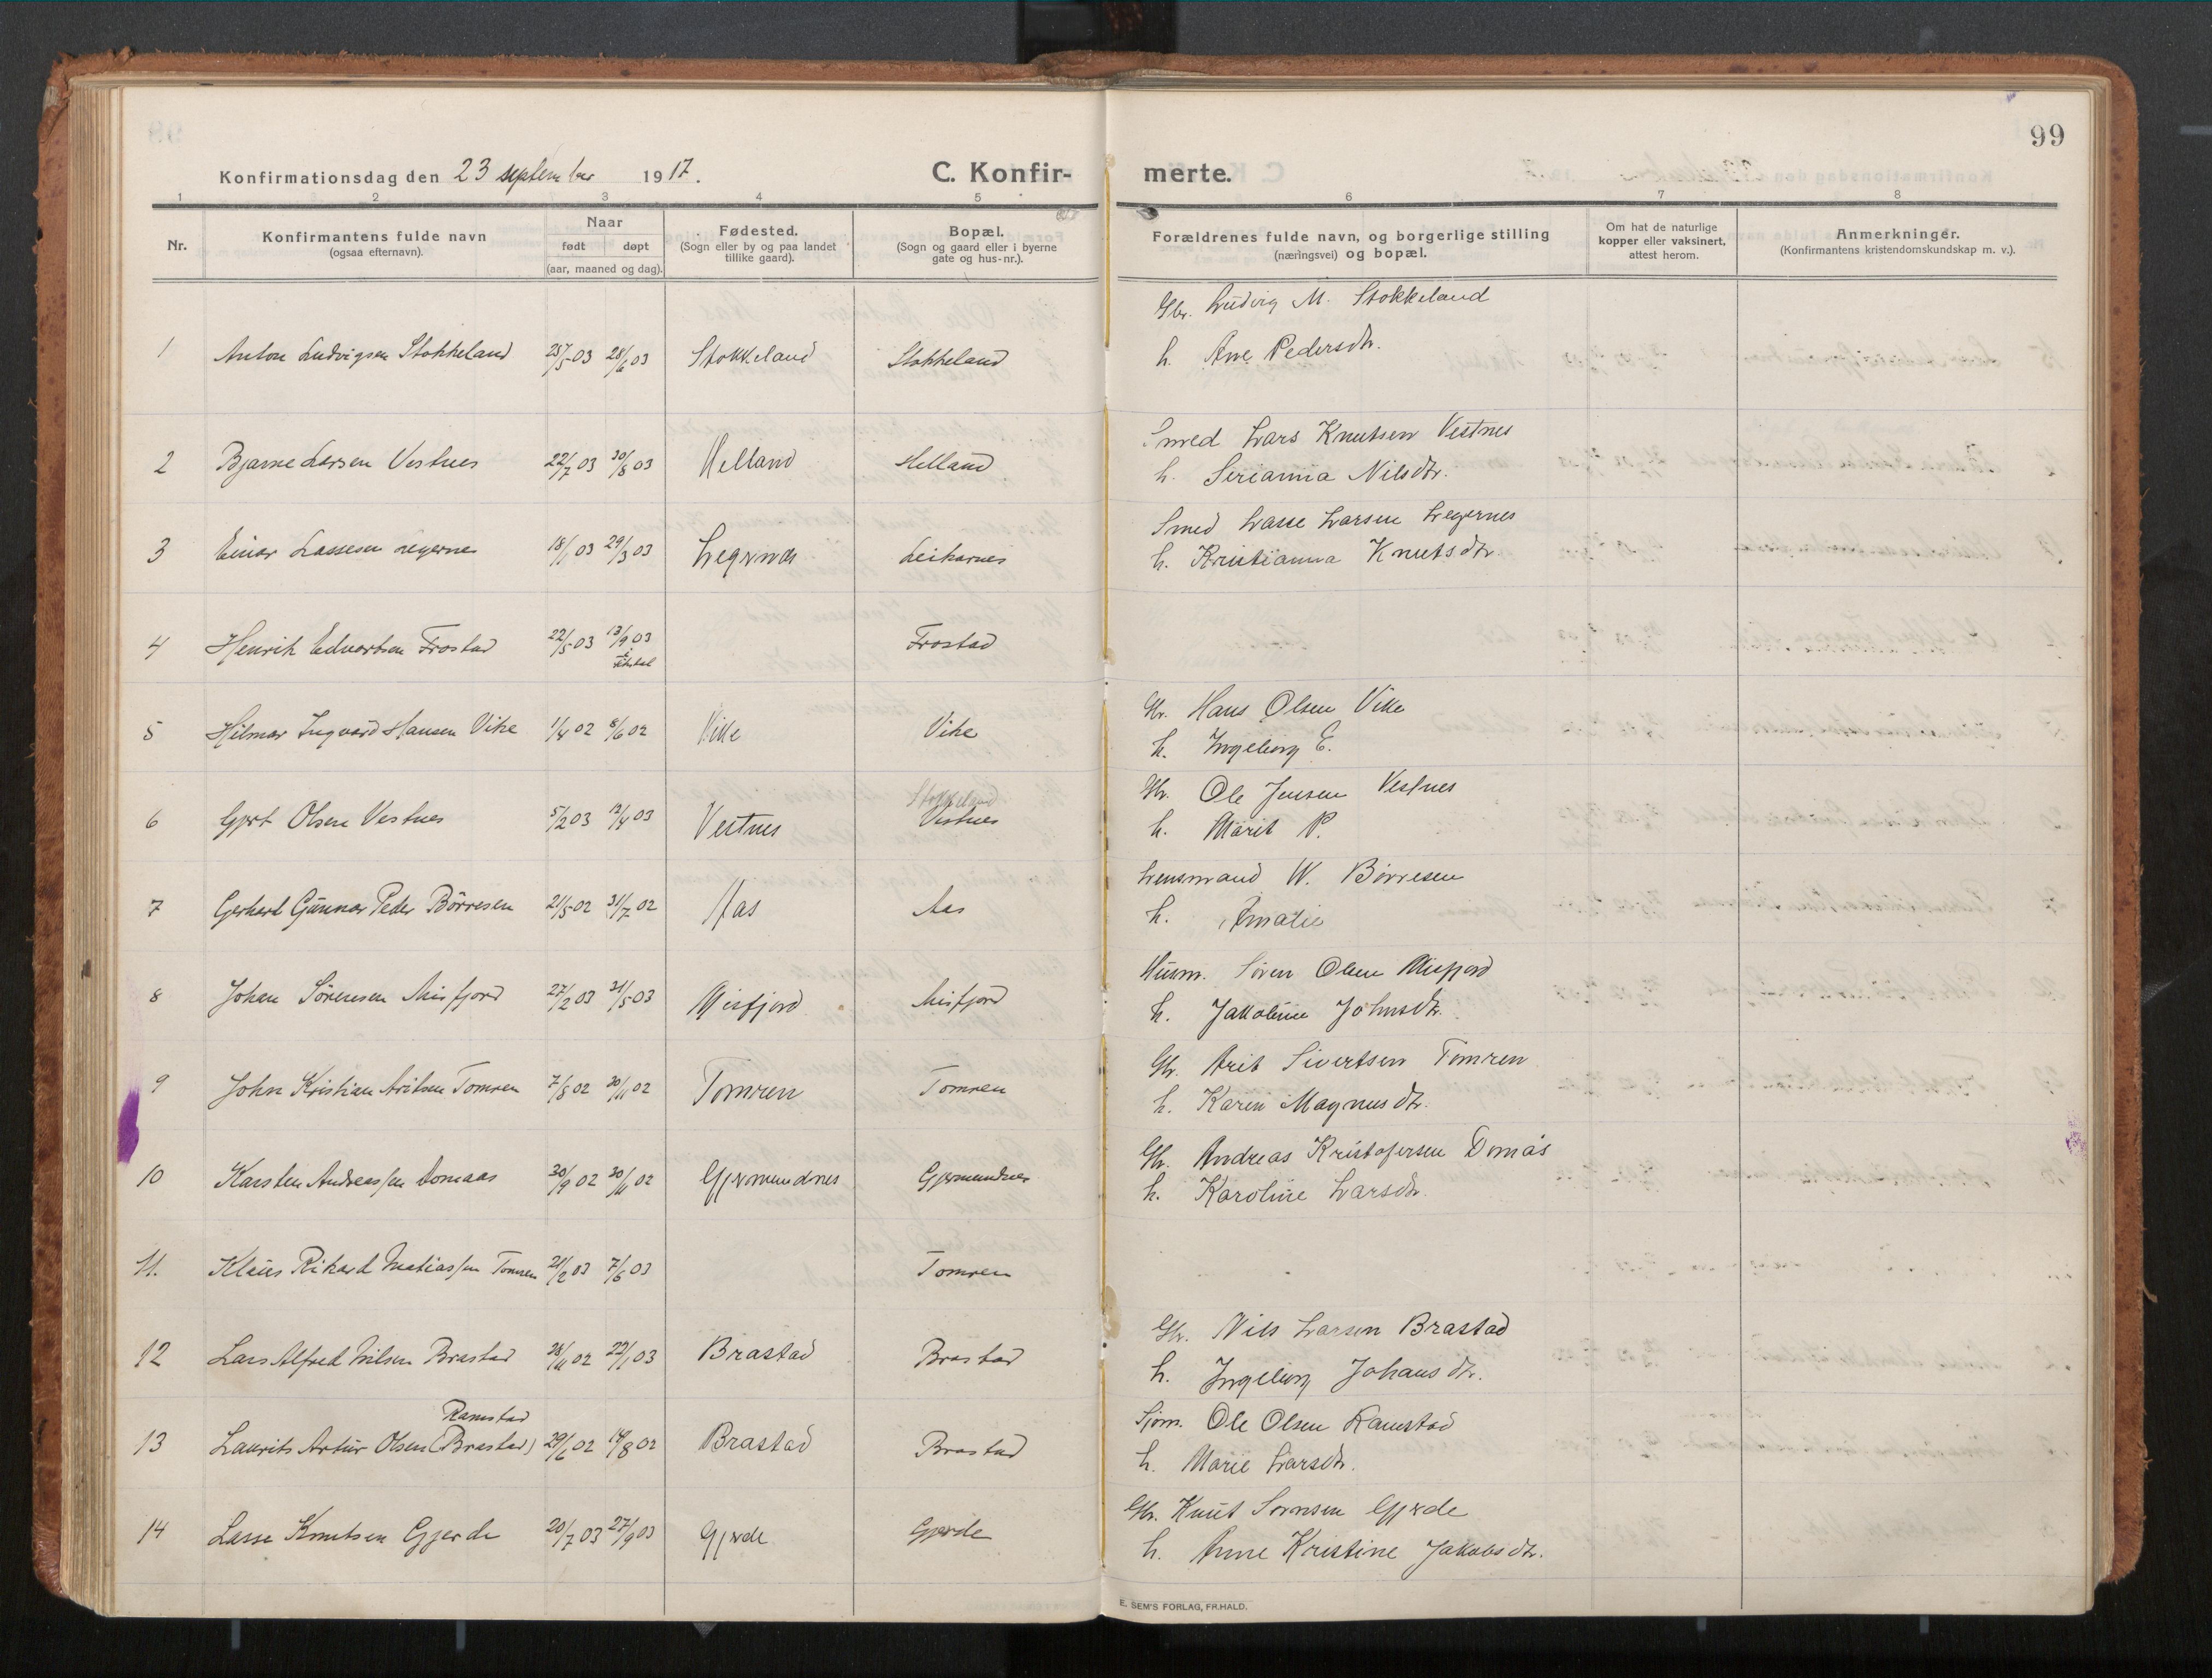 99
Konfirmationsdag den 23 september 1917.
C. Konfir-merte.
1 2 3 4 5 6 7 8
Nr.
Konfirmantens fulde navn
(ogsaa efternavn).
Naar
født døpt
(aar, maaned og dag).
Fødested.
(Sogn eller by og paa landet
tillike gaard).
Bopæl.
(Sogn og gaard eller i byerne
gate og hus-nr.).
Forældrenes fulde navn, og borgerlige stilling
(næringsvei) og bopæl.
Om hat de naturlige
kopper eller vaksinert,
attest herom.
Anmerkninger.
(Konfirmantens kristendomskundskap m. v.).
Gbr. Ludvig M. Stokkeland
1 Anton Ludvigsen Stokkeland 25/5 03 28/6 03 Stokkeland Stokkeland
h. Ane Pedersdtr.
Smed Lars Knutsen Vestnes
2 Bjarne Larsen Vestnes 22/7 03 30/8 03 Helland Helland
h. Serianna Nilsdtr.
Smed Lasse Larsen Legernes
3 Einar Lassesen Legernes 18/1 03 29/3 03 Legernes Leikarnes
h. Kristianna Knutsdtr.
4 Henrik Edvartsen Frostad 22/5 03 13/9 03 Frostad
Gbr. Hans Olsen Vike
5 Hilmar Ingvard Hansen Vike 1/4 02 8/6 02 Vike Vike
h. Ingeborg E.
Gbr. Ole Jensen Vestnes
Stokkeland
6 Gjert Olsen Vestnes 5/2 03 12/4 03 Vestnes Vestnes
h. Marit P.
Lensmand W. Børresen
7 Gerhard Gunnar Peder Börresen 21/5 02 31/7 02 Aas Aas
h. Amalie
Husm. Søren Olsen Misfjord
8 Johan Sörensen Misfjord 27/2 03 31/5 03 Misfjord Misfjord
h. Jakobine Johnsdtr.
Gbr. Arit Sivertsen Tomren
9 John Kristian Aritsen Tomren 7/8 02 30/11 02 Tomren Tomren
h. Karen Magnusdtr.
Gbr. Andreas Kristofersen Domås
10 Karsten Andreassen Domaas 30/9 02 30/11 02 Gjermundnes Gjermundnes
h. Karoline Larsdtr.
11. Klaus Rikard Matiassen Tomren 21/2 03 7/6 03 Tomren
Gbr. Nils Larsen Brastad
12 Lars Alfred Nilsen Brastad 28/11 02 22/1 03 Brastad Brastad
h. Ingeborg Johansdtr.
Ramstad
Sjøm. Ole Olsen Ramstad
13 Laurits Artur Olsen (Brastad) 29/6 02 14/8 02 Brastad Brastad
h. Marie Larsdtr.
Gbr. Knut Sørnsen Gjerde
14 Lasse Knutsen Gjerde 20/7 03 27/9 03 Gjerde Gjerde
h. Anne Kristine Jakobsdtr.
E. SEM'S FORLAG, FR.HALD.